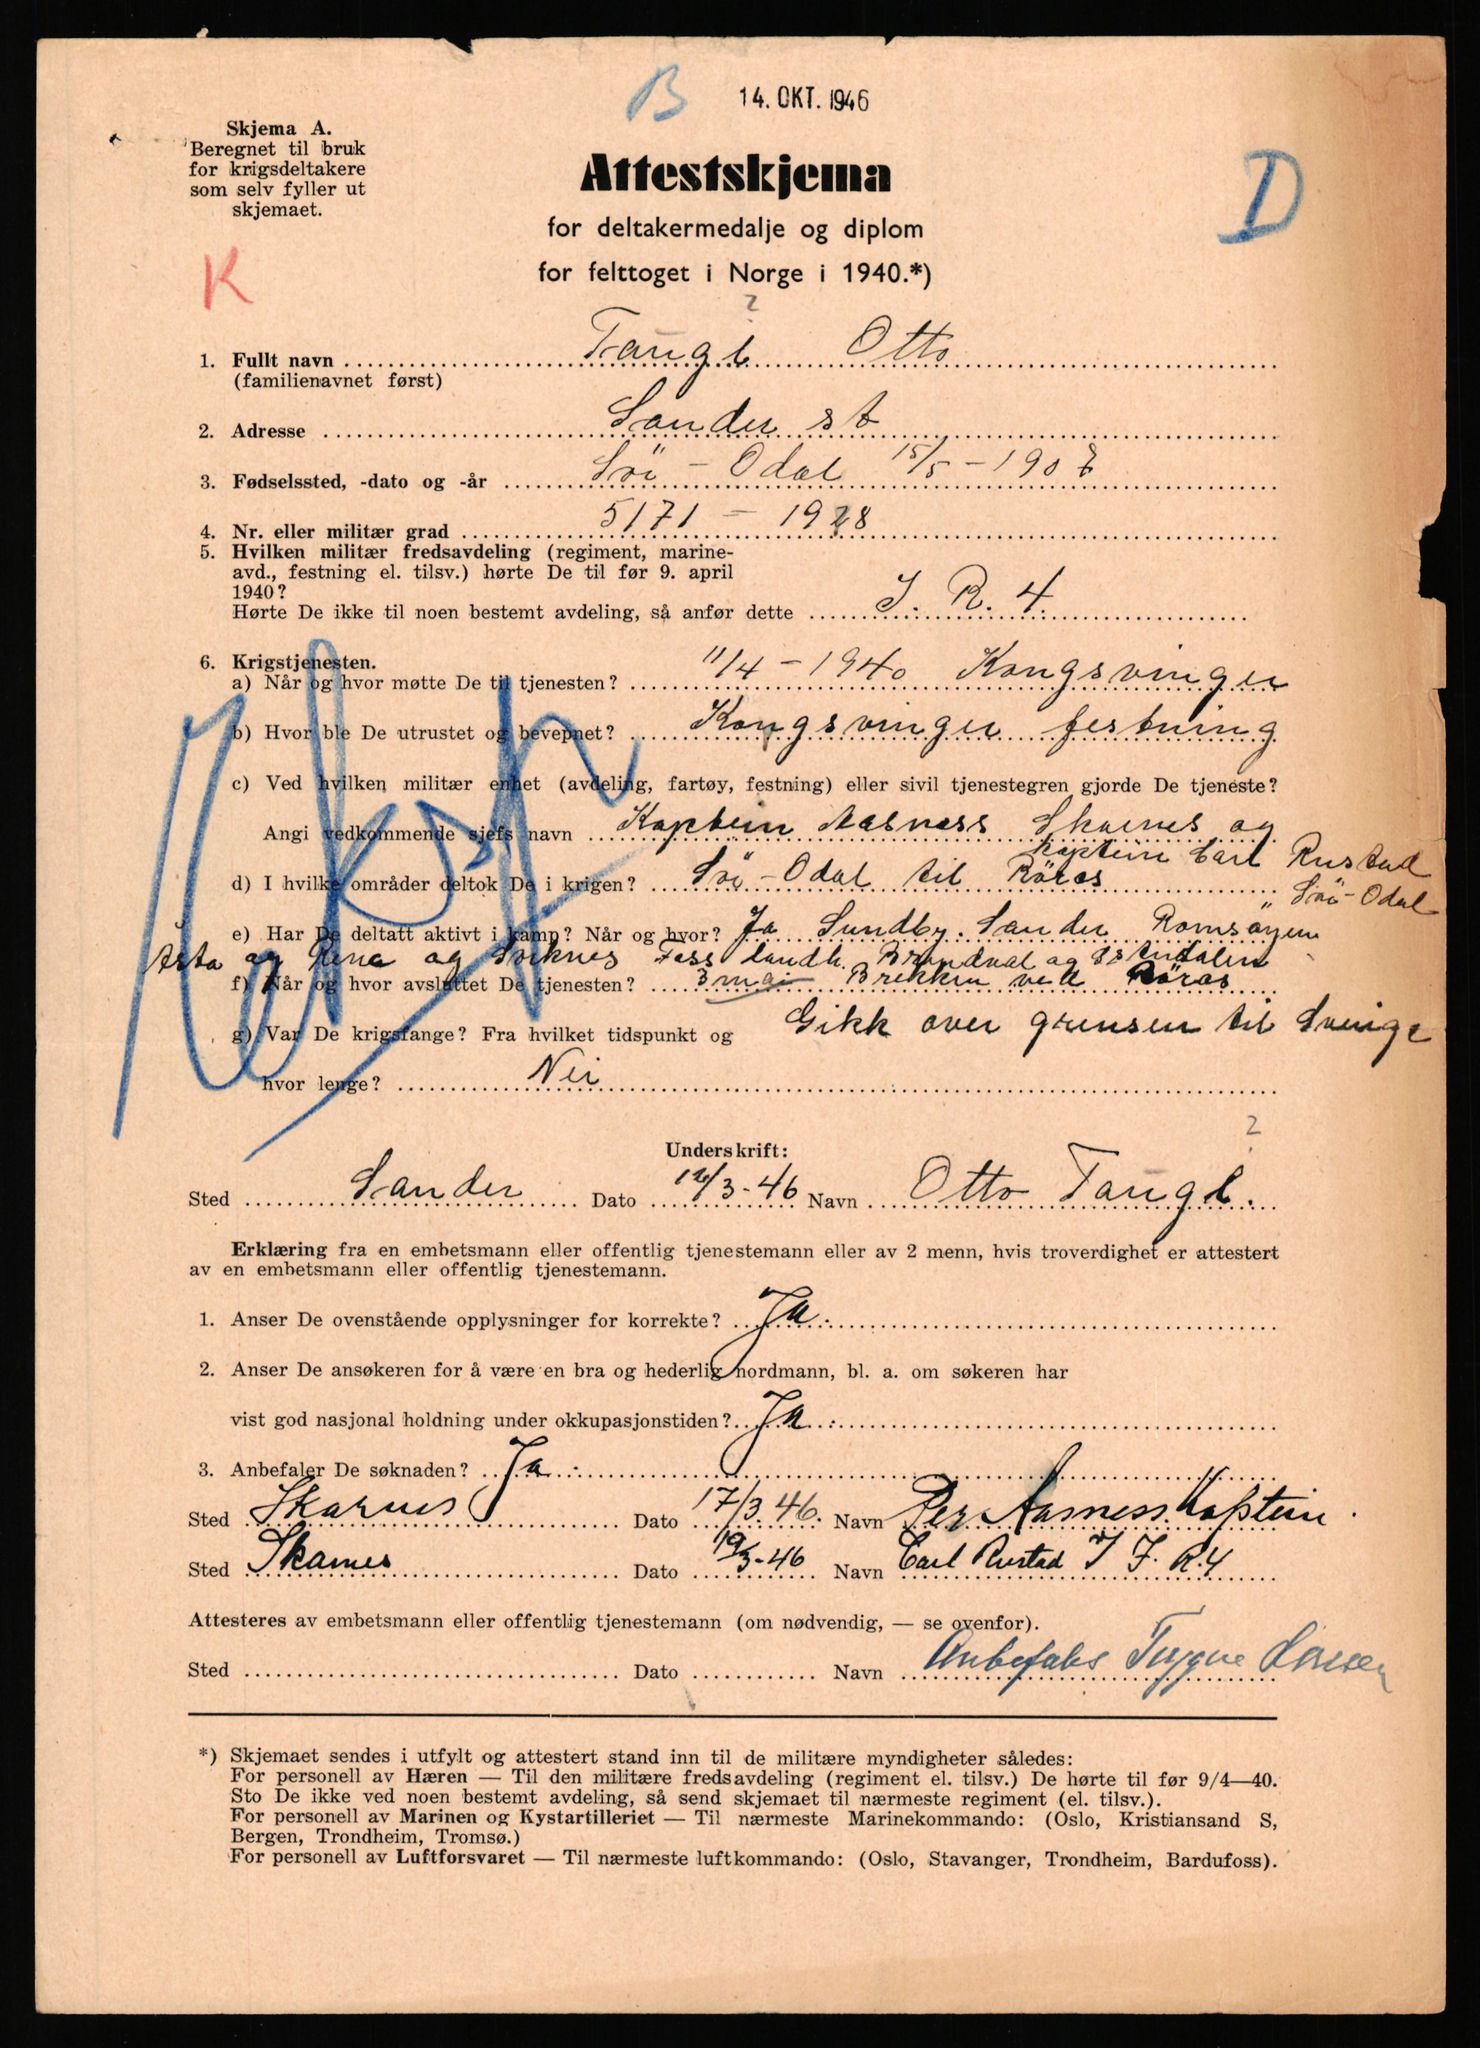 B
14. OKT. 1946
D
Skjema A.
Beregnet til bruk
for krigsdeltakere
som selv fyller ut
skjemaet.
K
Attestskjema
for deltakermedalje og diplom
for felttoget i Norge i 1940.*)
?
1. Fullt navn Taugl Otto
(familienavnet først)
2. Adresse Sander st
3. Fødselssted, -dato og -år Sör - Odal 15/5 - 1908
4. Nr. eller militær grad 5171 - 1928
5. Hvilken militær fredsavdeling (regiment, marine-
avd., festning el. tilsv.) hørte De til før 9. april
1940?
Hørte De ikke til noen bestemt avdeling, så anfør dette J. R. 4.
6. Krigstjenesten.
a) Når og hvor møtte De til tjenesten? 11/4 - 1940 Kongsvinger
b) Hvor ble De utrustet og bevepnet? Kongsvinger festning
c) Ved hvilken militær enhet (avdeling, fartøy, festning) eller sivil tjenestegren gjorde De tjeneste?
Angi vedkommende sjefs navn Kaptein Aasness Skarnes og
Kaptein Carl Rustad
d) I hvilke områder deltok De i krigen? Sör - Odal til Röros " Sör - Odal
e) Har De deltatt aktivt i kamp? Når og hvor? Ja Sundby. Sander Romsöyen
Åsta og Rena og Foss landh. Brandval og Östendalen
f) Når og hvor avsluttet De tjenesten? 3 mai Brekken ved Röros
g) Var De krigsfange? Fra hvilket tidspunkt og Gikk over grensen til Sverige
hvor lenge? Nei
?
Underskrift:
Sted Sander Dato 12/3 - 46 Navn Otto Taugl.
Erklæring fra en embetsmann eller offentlig tjenestemann eller av 2 menn, hvis troverdighet er attestert
av en embetsmann eller offentlig tjenestemann.
1. Anser De ovenstående opplysninger for korrekte? Ja.
2. Anser De ansøkeren for å være en bra og hederlig nordmann, bl. a. om søkeren har
vist god nasjonal holdning under okkupasjonstiden? Ja.
3. Anbefaler De søknaden? Ja.
Sted Skarnes Dato 17/3. 46. Navn Per Aasness. Kaptein.
Sted Skarnes Dato 19/3 - 46 Navn Carl Rustad I J. R. 4
Attesteres av embetsmann eller offentlig tjenestemann (om nødvendig, — se ovenfor).
Sted Dato Navn Anbefales Trygve Larsen
*) Skjemaet sendes i utfylt og attestert stand inn til de militære myndigheter således:
For personell av Hæren — Til den militære fredsavdeling (regiment el. tilsv.) De hørte til før 9/4—40.
Sto De ikke ved noen bestemt avdeling, så send skjemaet til nærmeste regiment (el. tilsv.).
For personell av Marinen og Kystartilleriet — Til nærmeste Marinekommando: (Oslo, Kristiansand S,
Bergen, Trondheim, Tromsø.)
For personell av Luftforsvaret — Til nærmeste luftkommando: (Oslo, Stavanger, Trondheim, Bardufoss).